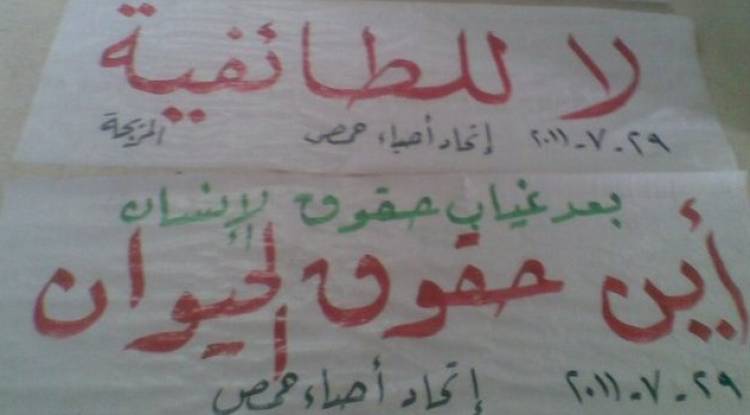 لا للطائفية
٢٩-٧-٢٠١١ إتحاد أحياء حمص المريجة
بعد غياب حقوق الإنسان
أين حقوق الحيوان
٢٩-٧-٢٠١١ إتحاد أحياء حمص